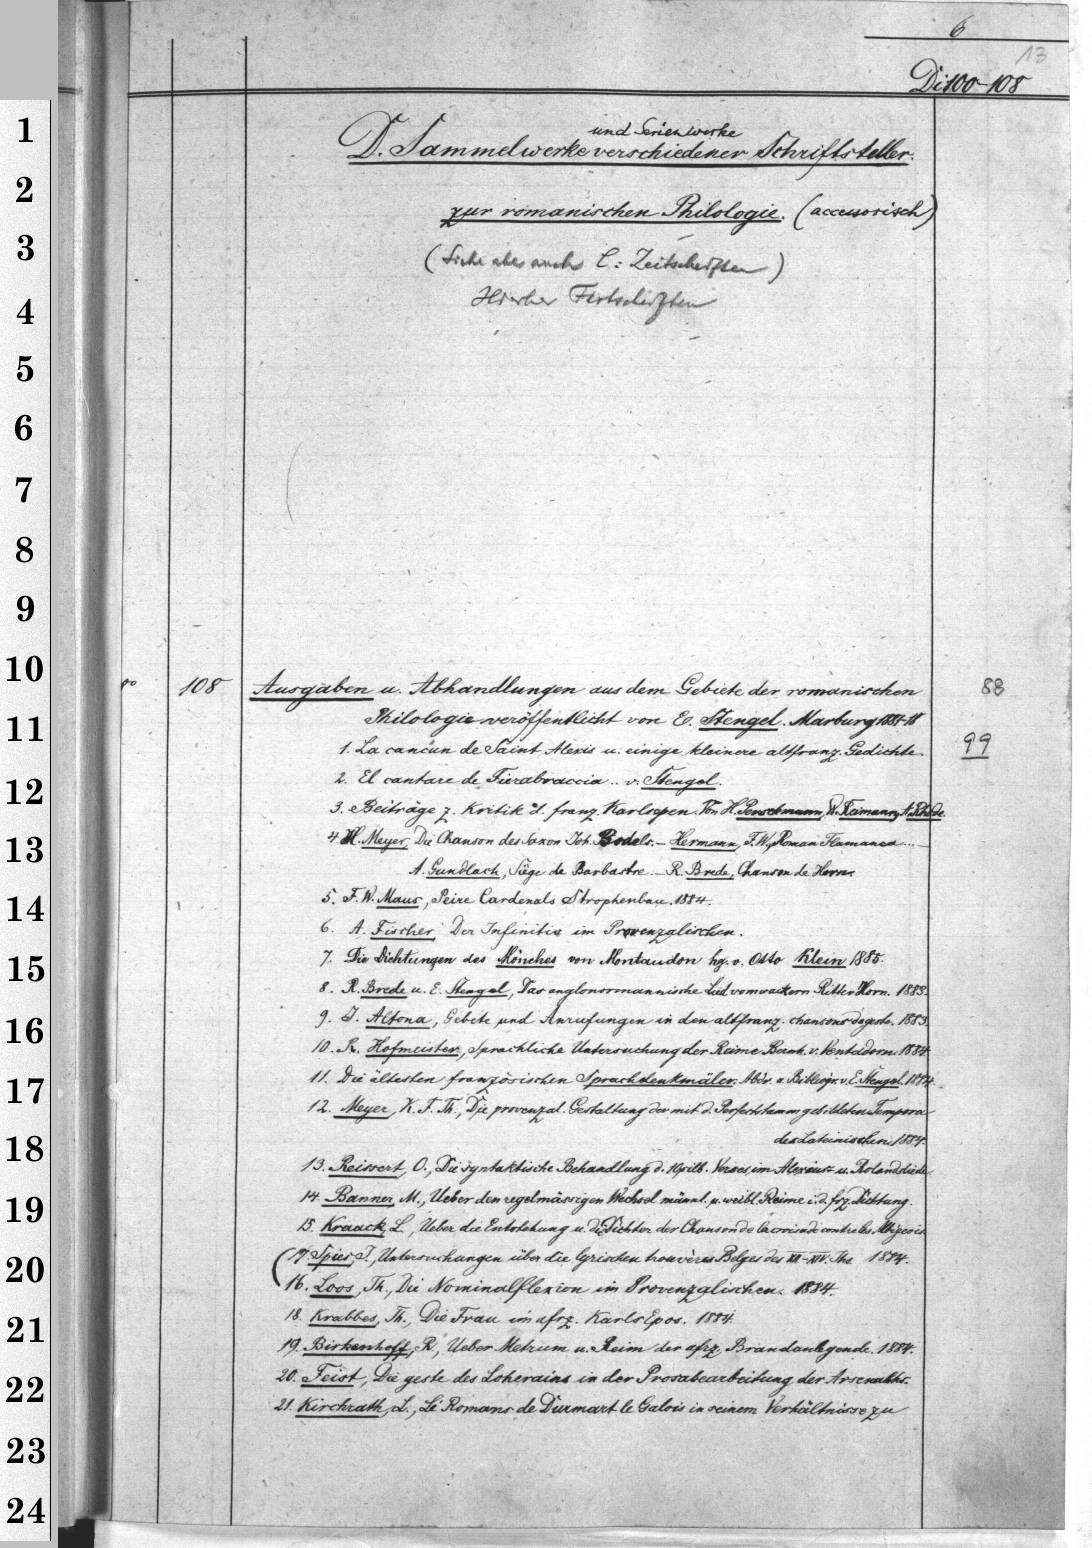 6
13
Di 100-108
und Serienwerke
D. Sammelwerke verschiedener Schriftsteller.
zur romanischen Philologie. (accessorisch)
(Siehe aber auch C: Zeitschriften)
Hierher Festschriften
108 Ausgaben u. Abhandlungen aus dem Gebiete der romanischen 88
Philologie veröffentlicht von E. Stengel. Marburg 1881-
99
1. La cancun de Saint Alexis u. einige kleinere altfranz. Gedichte.
2. El cantare de Fierabraccia .. v. Stengel.
3. Beiträge z. Kritik d. franz. Karlsepen. Von H. Perschmann, W. Reimann, A. Rhode.
4. H. Meyer, Die Chanson des Saxon Joh. Bodels. – Hermann, F. W., Roman Flamenca ...
A. Gundlach, Siège de Barbastre. – R. Brede, Chanson de Horn.
5. F. W. Maus, Peire Cardenals Strophenbau. 1884.
6. A. Fischer, Der Infinitiv im Provenzalischen.
7. Die Dichtungen des Mönches von Montaudon hg. v. Otto Klein 1885.
8. R. Brede u. E. Stengel, Das anglonormannische Lied vom wackern Ritter Horn. 1883.
9. J. Altona, Gebete und Anrufungen in den altfranz. chansons de geste. 1883.
10. R. Hofmeister, Sprachliche Untersuchung der Reime Bernh. v. Ventadorn. 1884.
11. Die ältesten französischen Sprachdenkmäler. Abdr. u. Bibliogr. v. E. Stengel. 1884.
12. Meyer, K. F. Th., Die provenzal. Gestaltung der mit d. Perfectstamm gebildeten Tempora
des Lateinischen. 1884.
13. Reissert, O., Die syntaktische Behandlung d. 10silb. Verses im Alexius- u. Rolandsliede
14. Banner, M., Ueber den regelmässigen Wechsel männl. u. weibl. Reime i. d. frz. Dichtung.
15. Kraack, L., Ueber die Entstehung u. die Dichter der Chanson de la croisade contre les Albigeois
(17. Spies, J., Untersuchungen über die lyrischen trouvères Belges des XII-XIV. Jhs. 1884.
16. Loos, Th., Die Nominalflexion im Provenzalischen. 1884.
18. Krabbes, Th., Die Frau im afrz. Karls-Epos. 1884.
19. Birkenhoff, R., Ueber Metrum u. Reim der afrz. Brandanlegende. 1884.
20. Feist, Die geste des Loherains in der Prosabearbeitung der Arsenalhs.
21. Kirchrath, L., Li Romans de Durmart le Galois in seinem Verhältnisse zu